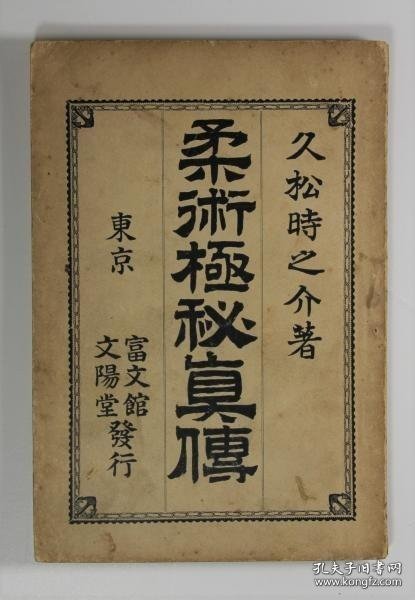 久松時之介著
柔術極秘真傳
東京
富文館
文陽堂
發行
孔夫子旧书网
kongfz.com